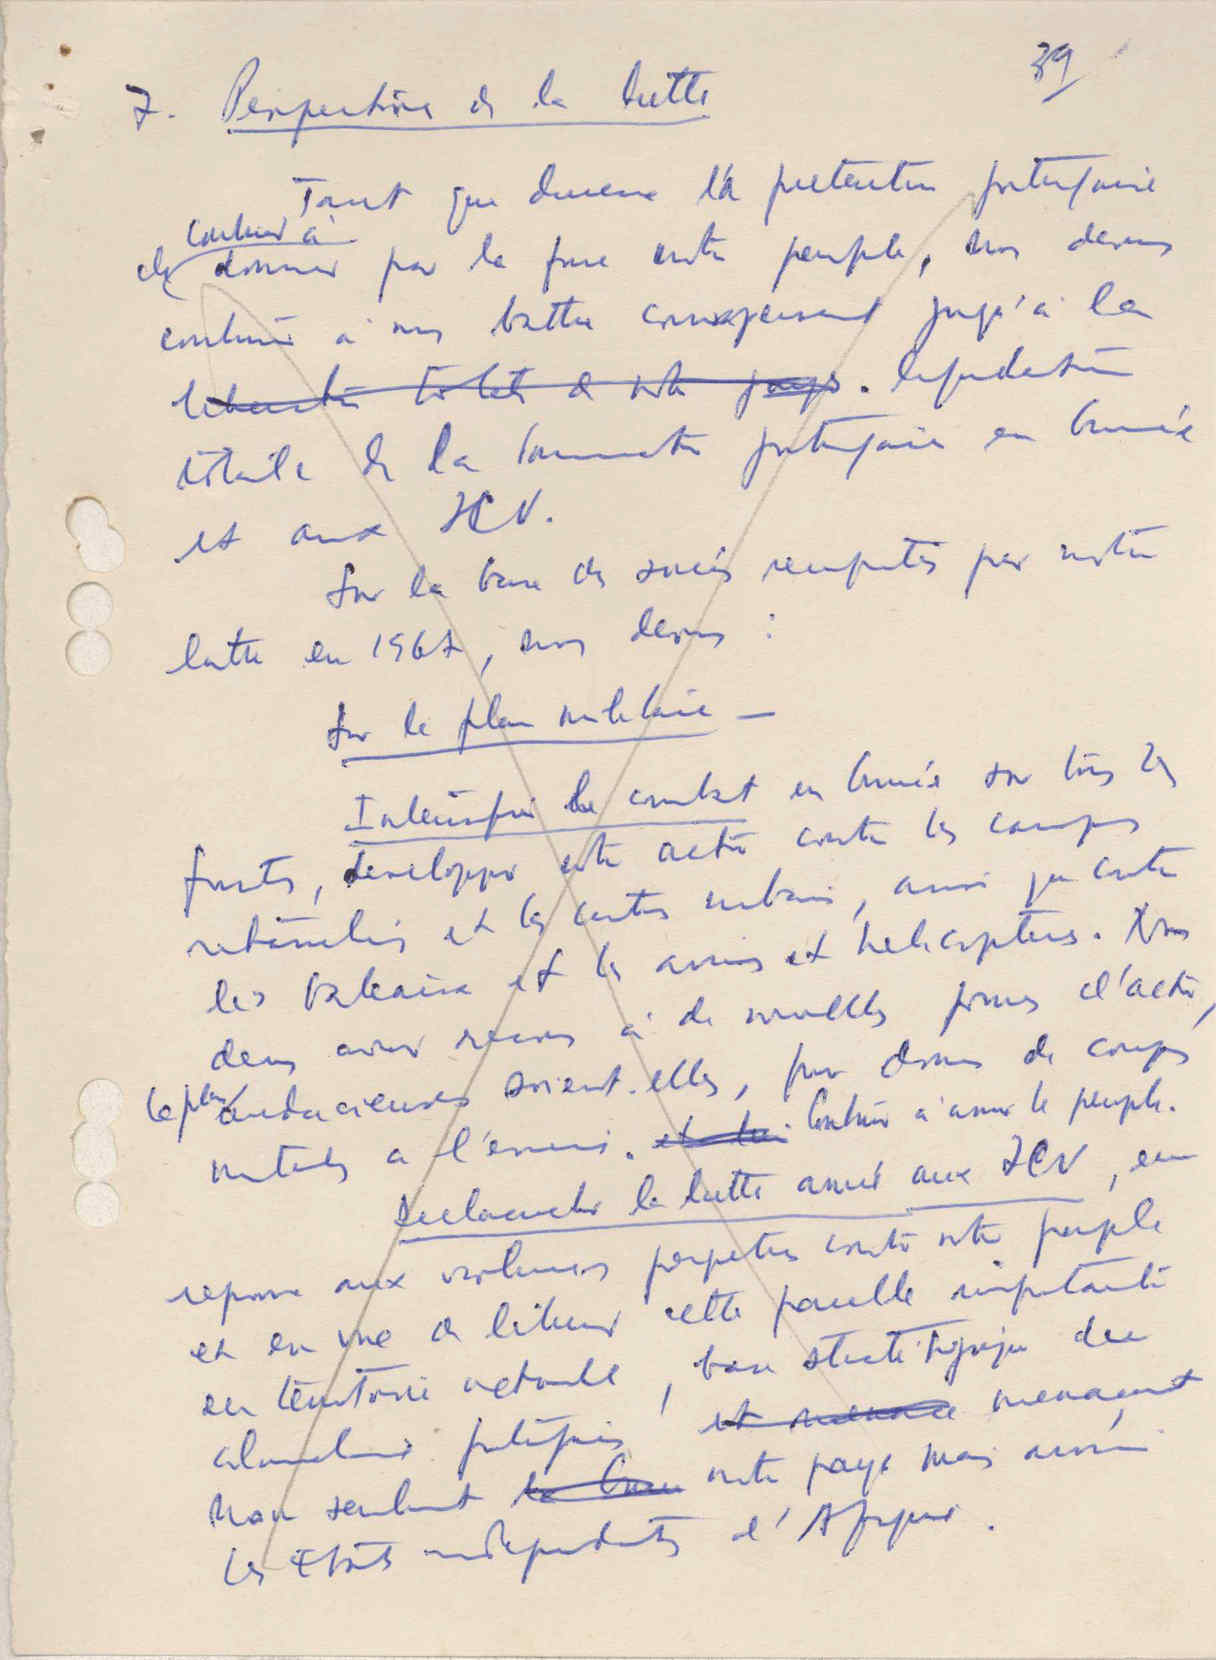 39
7. Perspectives de la lutte
Tant que durera la pretention portugaise
continuer à
de dominer par la force notre peuple, nous devons
continuer à nous battre courageusement jusqu'à la
liberation totale de notre pays. liquidation
totale de la domination portugaise en Guinée
et aux ICV.
Sur la base des succès remportés par notre
lutte en 1967, nous devons :
Sur le plan militaire —
Intensifier le combat en Guinée sur tous les
fronts, developper notre action contre les camps
retranchés et les centres urbains, ainsi que contre
les bateaux et les avions et helicopteres. Nous
devons avoir recours à de nouvelles formes d'action,
le plus audacieuses soient-elles, pour donner de coups
mortels a l'ennemi. Continuer à armer le peuple.
Declancher la lutte armée aux ICV, en
reponse aux violences perpetrées contre notre peuple
et en vue de liberer cette parcelle importante
du territoire national, base strategique des
colonialistes portugais et menace menaçant
non seulement notre pays mais aussi
les Etats independants d'Afrique.